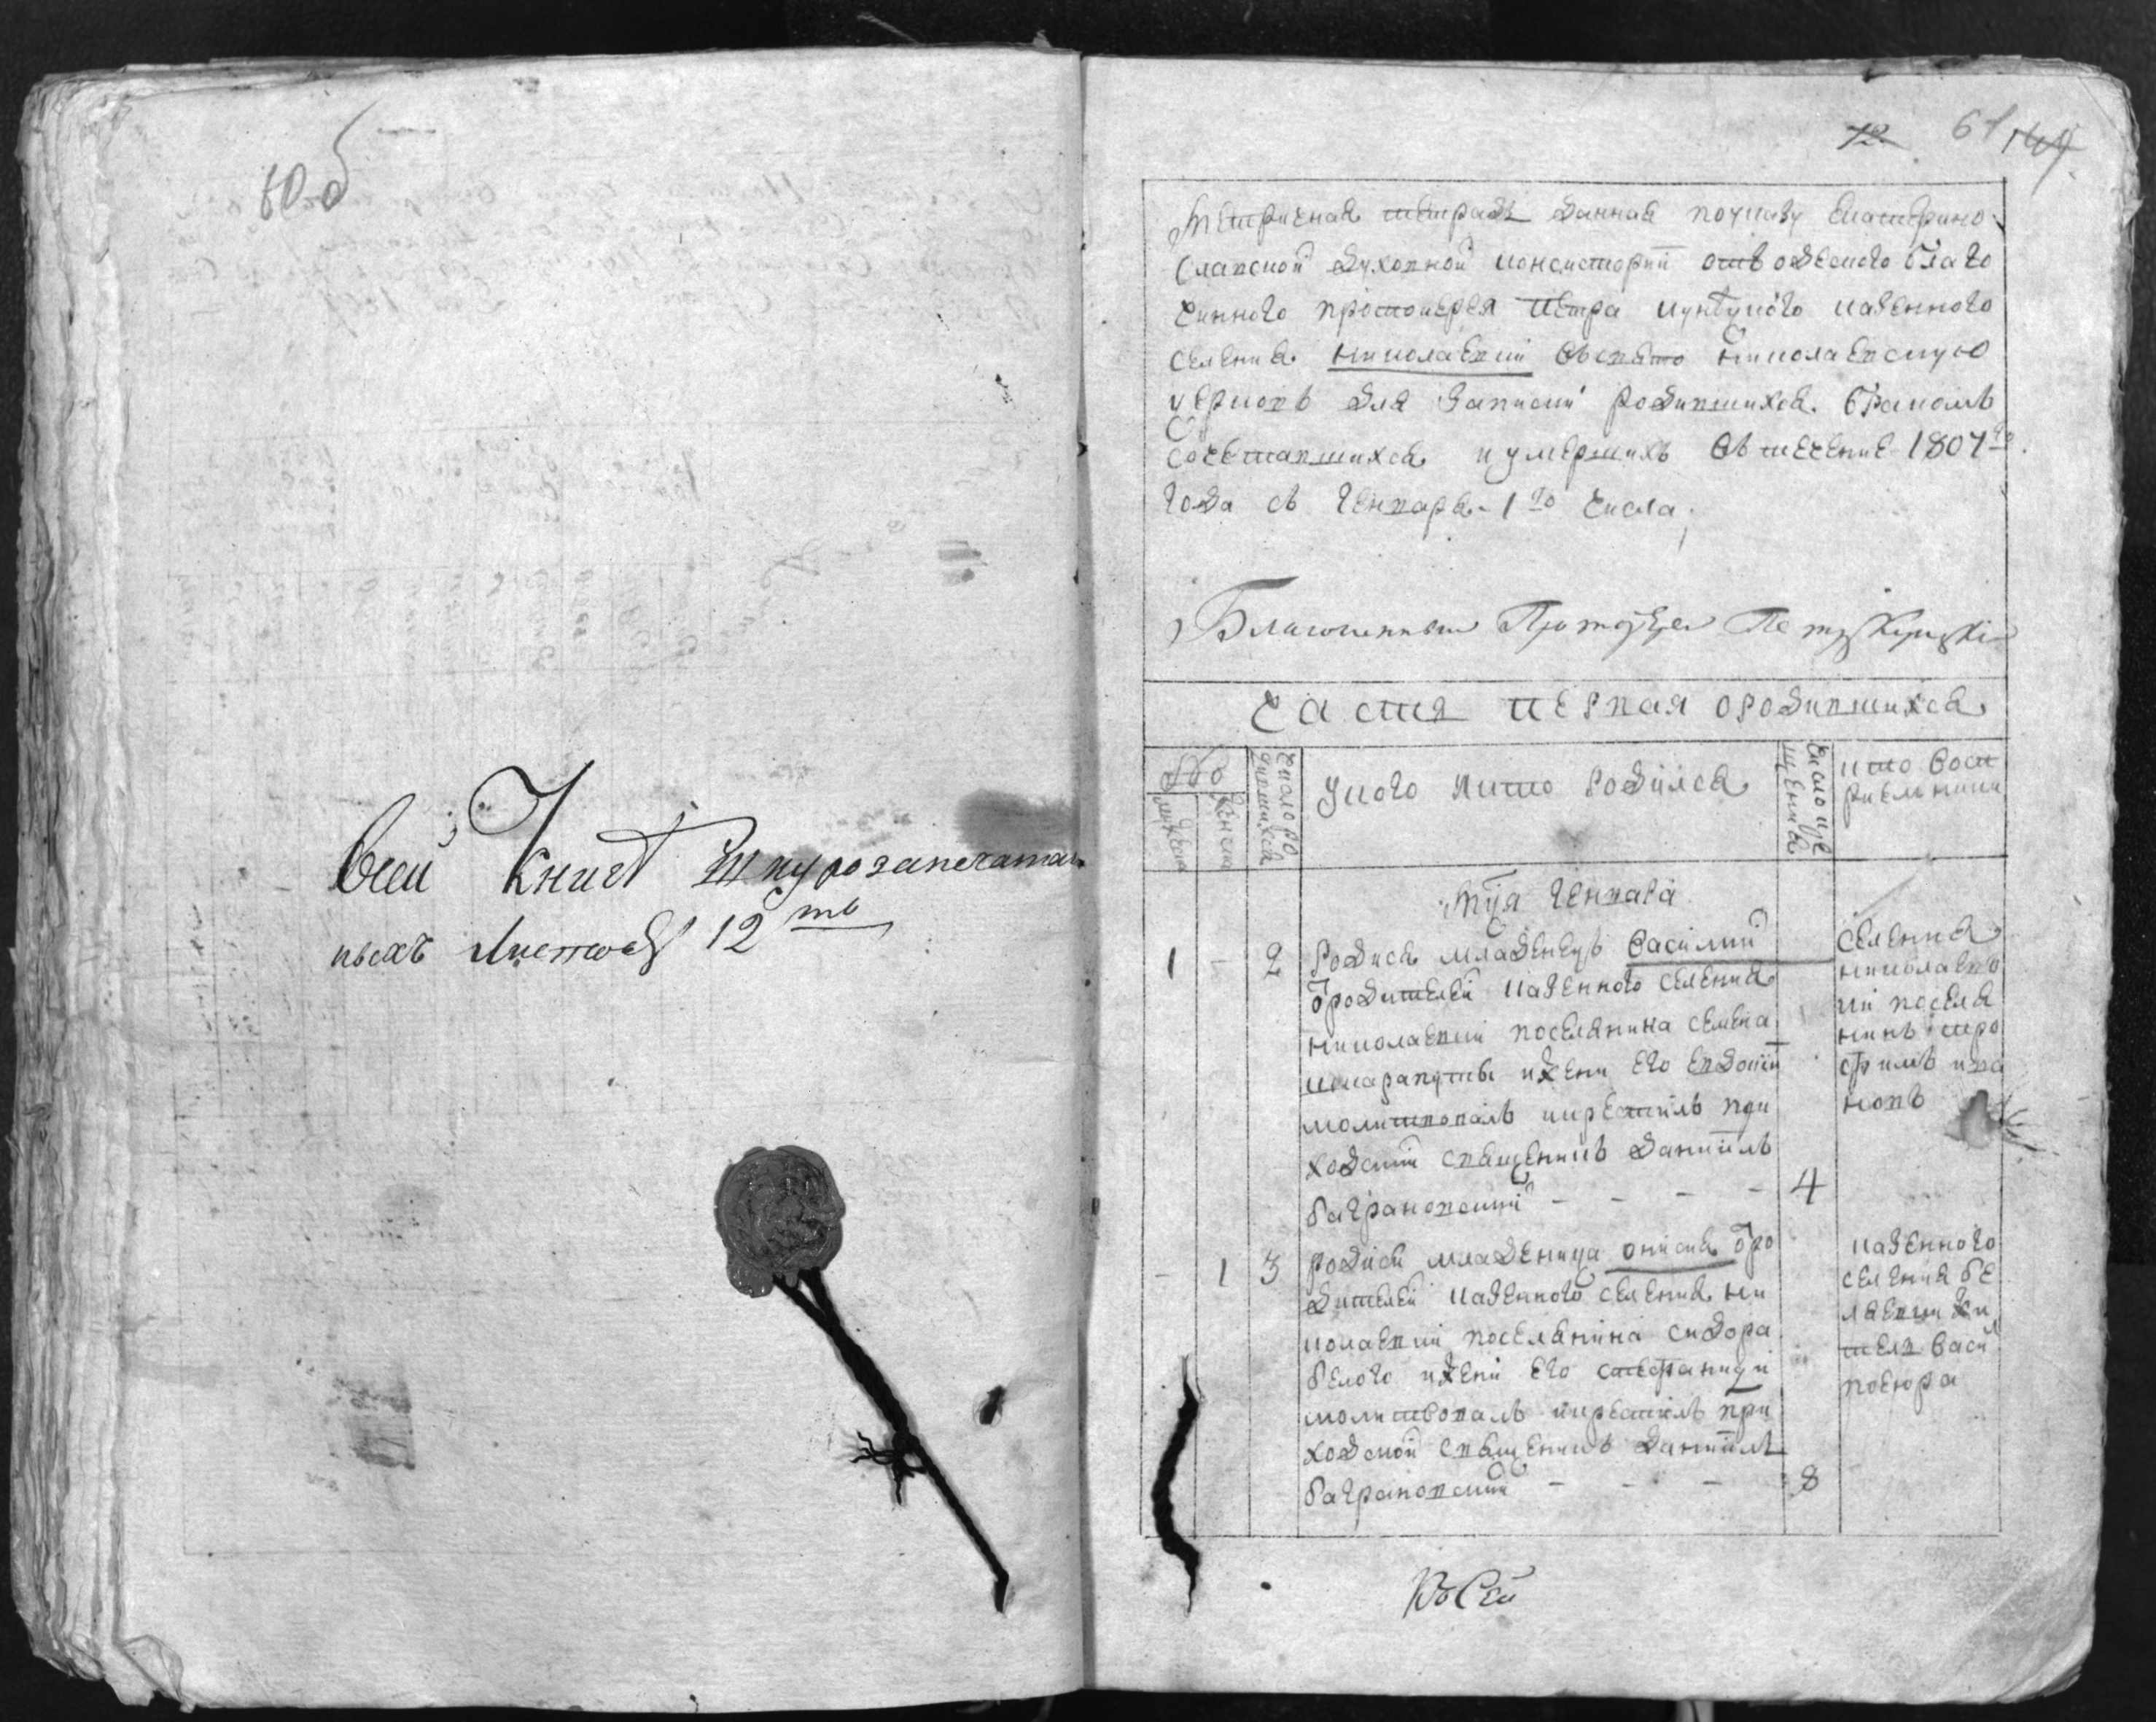 60 об
Всей Книге Шнурозапечатан
ныхъ Листовъ 12ть
12
61
Метричная тетрадь данная поуказу Екатерино
славской духовной консистории отъ одеского благо
чинного протоиерея Петра Куницкого казенного
селения николаевки Свято николаевскую
церковь для записки родившихся бракомъ
сочетавшихся и умершихъ въ течение 1807го
года съ генваря 1го числа
Благочинный Протоіерей Петръ Куницкій
Частя первая ородившихся
мужеска
женска
число ро
дившихся
укого кто родился
число кре
щения
кто восп
риемники
Мця генваря
1 - 2
родися младенецъ василий
ѿ родителей казенного селения
николаевки поселянина семена
ижени его евдокии
молитвовалъ икрестилъ при
ходский священникъ даниилъ
баграновский - - - - 4
селения
николаев
ки поселя
нинъ тро
фимъ
- 1 3
родися младеница онисия ѿ ро
дителей казенного селения ни
колаевки поселянина сидора
белого ижени его стефаниди
молитвовалъ икрестилъ при
ходской священникъ даниилъ
баграновский - - - 8
казенного
селения бе
ляевки жи
тел васил
Въ сей